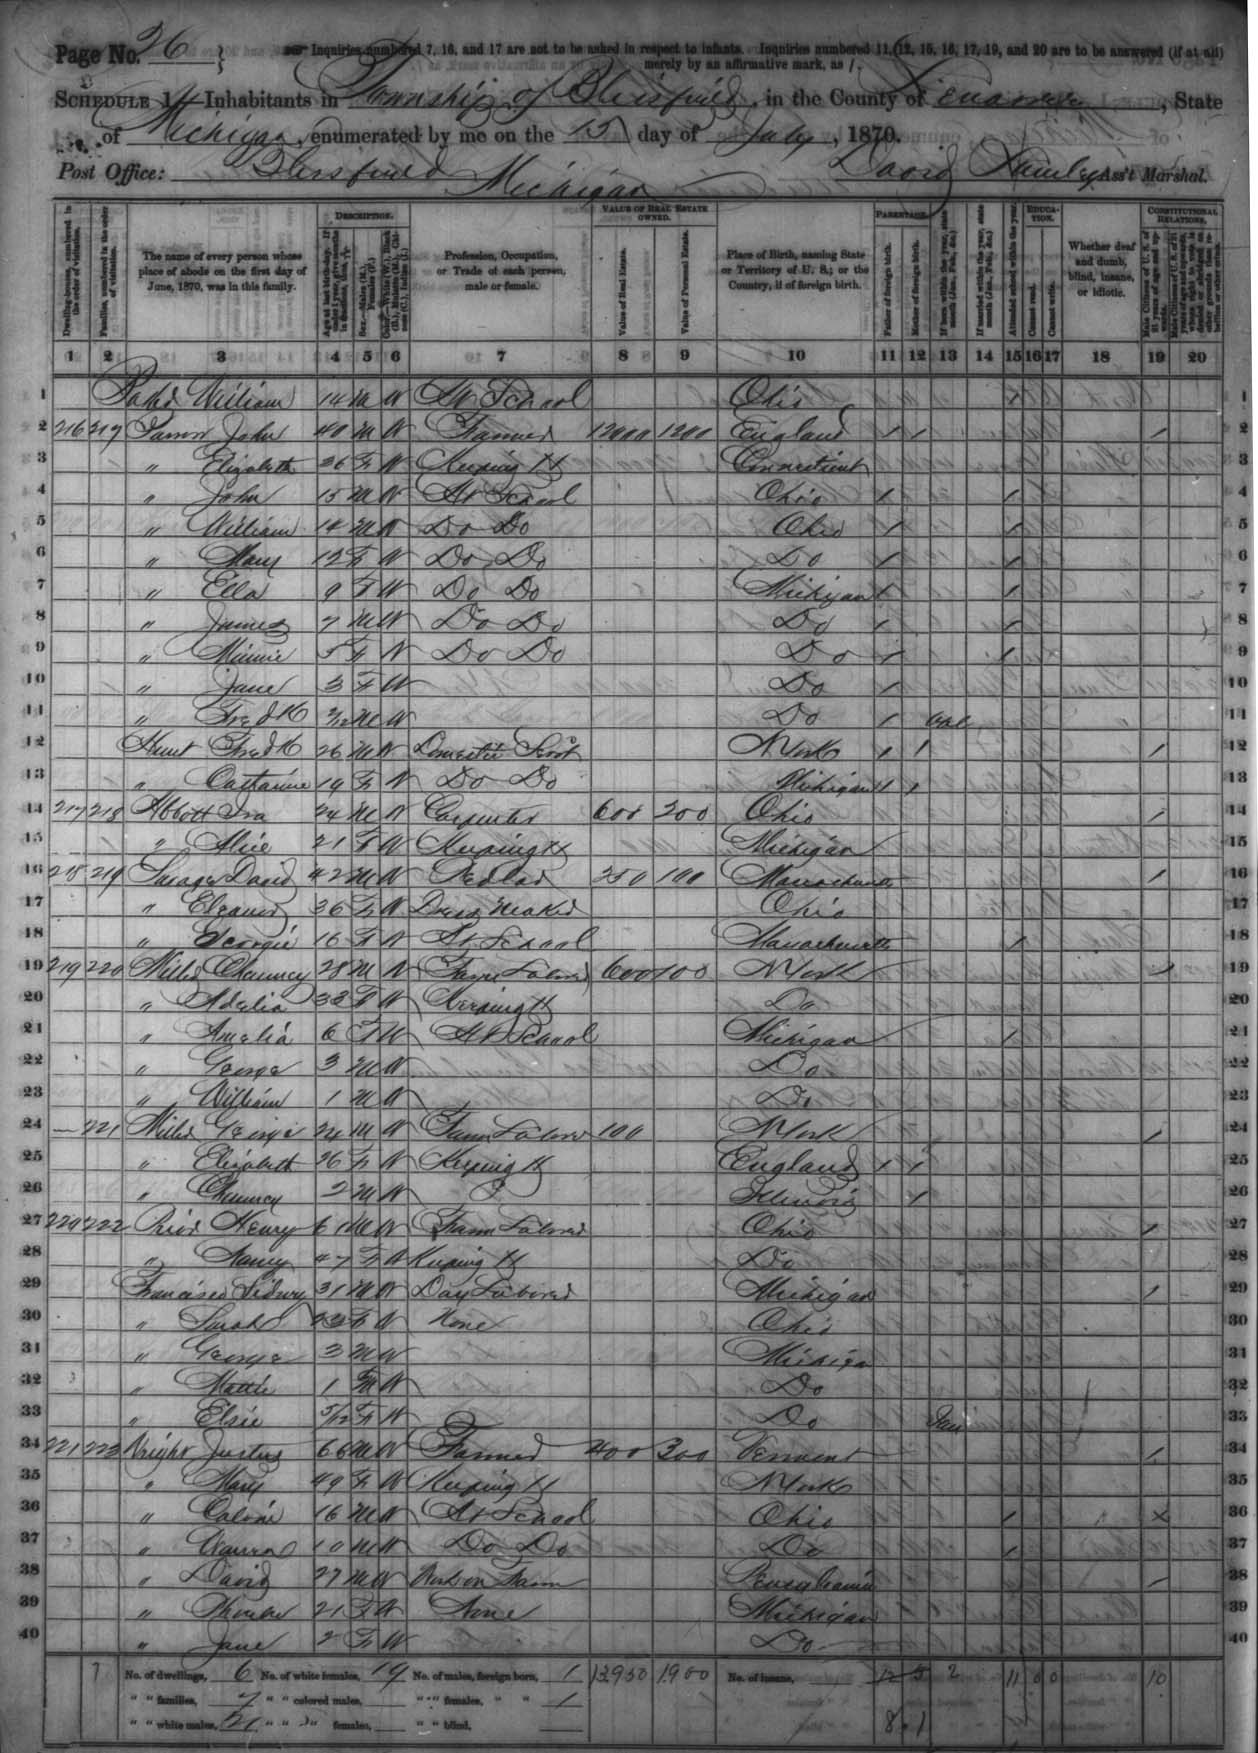 Page No. 26
Inquiries numbered 7, 16, and 17 are not to be asked in respect to infants. Inquiries numbered 11, 12, 15, 16, 17, 19, and 20 are to be answered (if at all)
merely by an affirmative mark, as /.
SCHEDULE 1.—Inhabitants in Township of Blissfield, in the County of Lenawee, State
of Michigan, enumerated by me on the 15 day of July, 1870.
Post Office: Blissfield Michigan David Ass't Marshal.
DESCRIPTION. VALUE OF REAL ESTATE OWNED. PARENTAGE. EDUCATION. CONSTITUTIONAL RELATIONS.
Dwelling-houses, numbered in the order of visitation.
Families, numbered in the order of visitation.
The name of every person whose place of abode on the first day of June, 1870, was in this family.
Profession, Occupation, or Trade of each person, male or female.
Value of Real Estate.
Value of Personal Estate.
Place of Birth, naming State or Territory of U. S.; or the Country, if of foreign birth.
Father of foreign birth.
Mother of foreign birth.
Attended school within the year.
Cannot read.
Cannot write.
Whether deaf and dumb, blind, insane, or idiotic.
1 2 3 4 5 6 7 8 9 10 11 12 13 14 15 16 17 18 19 20
1 William 14 M W At School Ohio / 1
2 216 217 John 40 M W Farmer 12000 1200 England / / / 2
3 " Elizabeth 36 F W Keeping H Connecticut 3
4 " John 15 M W At School Ohio / / 4
5 " William 14 M W Do Do Ohio / / 5
6 " Mary 12 F W Do Do Do / / 6
7 " Ella 9 F W Do Do Michigan / / 7
8 " James 7 M W Do Do Do / / 8
9 " Minnie 5 F W Do Do Do / / 9
10 " Jane 3 F W Do / 10
11 " Fredk 2/12 M W Do / Apl 11
12 Hunt Fredk 26 M W Domestic Servt N York / / / 12
13 " Catharine 19 F W Do Do Michigan / / 13
14 217 218 Abbott Ira 24 M W Carpenter 600 200 Ohio / 14
15 " Alice 21 F W Keeping H Michigan 15
16 218 219 Savage David 42 M W Pedlar 250 100 Massachusetts / 16
17 " Eleanor 36 F W Dress Maker Ohio 17
18 " Georgie 16 F W At School Massachusetts / 18
19 219 220 Miller Chauncy 28 M W Farm Laborer 600 100 N York / 19
20 " Adelia 33 F W Keeping H Do 20
21 " Amelia 6 F W At School Michigan / 21
22 " George 3 M W Do 22
23 " William 1 M W Do 23
24 — 221 Miller George 24 M W Farm Laborer 100 N York / 24
25 " Elizabeth 26 F W Keeping H England / / 25
26 " Chauncy 2 M W Illinois / 26
27 220 222 Henry 61 M W Farm Laborer Ohio / 27
28 " Nancy 47 F W Keeping H Do 28
29 Francisco Sidney 31 M W Day Laborer Michigan / 29
30 " Sarah 23 F W None Ohio 30
31 " George 3 M W Michigan 31
32 " Mattie 1 W Do 32
33 " Elsie 5/12 F W Do Jan 33
34 221 223 Wright Justus 66 M W Farmer 400 300 Vermont / 34
35 " Mary 49 F W Keeping H N York 35
36 " Calvin 16 M W At School Ohio / x 36
37 " Warren 10 M W Do Do Do / 37
38 " David 27 M W Work on Farm Pensylvania / 38
39 " Phoebe 21 F W None Michigan 39
40 " Jane 2 F W Do 40
7 No. of dwellings, 6 No. of white females, 19 No. of males, foreign born, 1 13950 1900 No. of insane, 12 5 2 11 0 0 10
" " families, 7 " " colored males, " " females, " " 1
" " white males, 21 " " " females, " " blind, 8 1